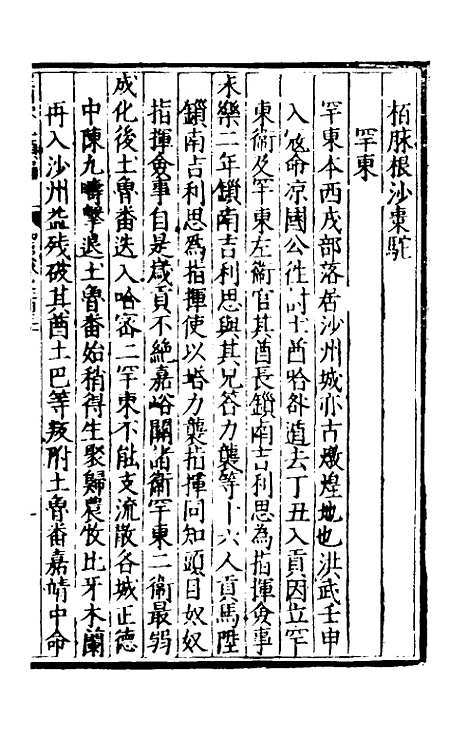 柏脉根沙棗駝
罕東
罕東本西戎部落居沙州城亦古燉煌地也洪武壬申
入寇命凉國公往討土酋哈昝遁去丁丑入貢因立罕
東衞及罕東左衞官其酋長鎖南吉利思為指揮僉事
永樂二年鎖南吉利思與其兄答力襲等十六人貢馬陞
鎖南吉利思為指揮使以塔力襲指揮同知頭目奴奴
指揮僉事自是歲貢不絶嘉峪關諸衞罕東二衞最弱
成化後土魯番迭入哈密二罕東不能支流散各城正德
中陳九疇擊退土魯番始稍得生聚歸農牧比牙木蘭
再入沙州益残破其酋土巴等叛附土魯番嘉靖中命